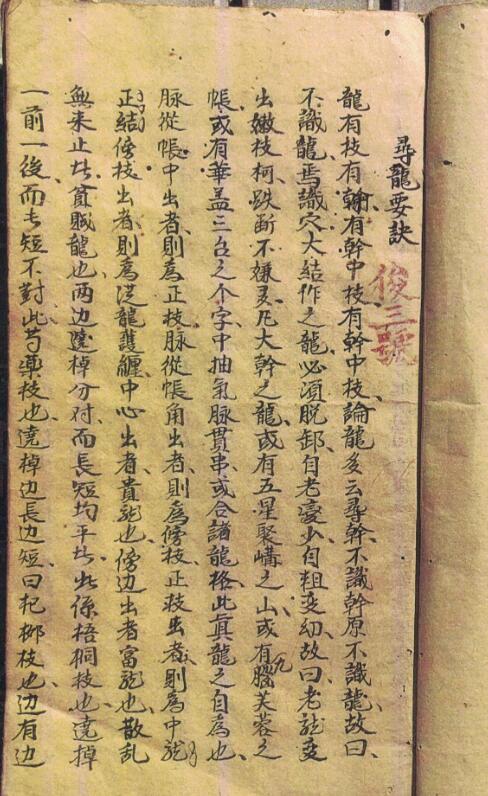 尋龍要訣
俊三號
龍有枝有榦有幹中枝有幹中枝論龍多云尋幹不識幹原不識龍故曰
不識龍焉識穴大結作之龍必須脫卸自老变少自粗变幼故曰老龍变
出嫩枝柯跌斷不嫌多凡大幹之龍或有五星聚構之山或有九腦芙蓉之
帳或有華盖三台之个字中抽氣脉貫串或合諸龍格此眞龍之自為也
脉從帳中出者則為正枝脉從帳角出者則為傍枝正枝出者則為中龍
正結傍枝出者則為從龍護纏中心出者貴龍也傍边出者富龍也散乱
無来止者貧賊龍也两边橈棹分对而長短均平者此係梧桐枝也橈棹
一前一後而长短不對此芍藥枝也橈棹边長边短曰杞梛枝也边有边